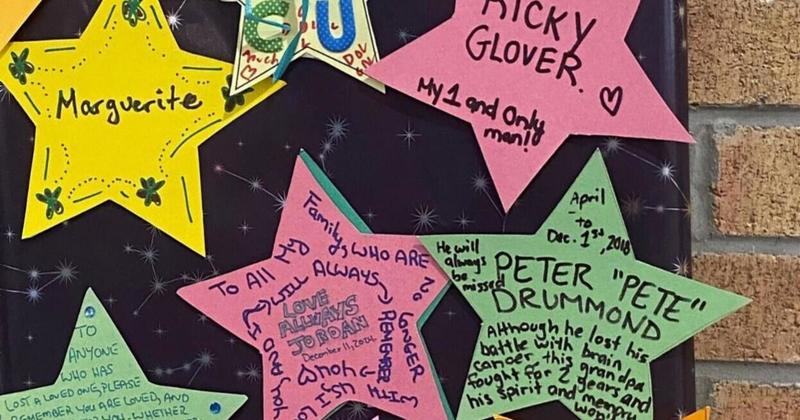 RICKY
GLOVER.
My 1 and Only
man!
Marguerite
April
to
Dec. 1st, 2018
He will
always
be
missed
PETER "PETE"
DRUMMOND
Although he lost his
battle with brain
cancer, this grandpa
fought for 2 years and
his spirit and
To All My Family, WHO ARE NO LONGER WITH
I WILL ALWAYS REMEMBER
LOVE
ALLWAYS
JORDAN
December 11, 2024
TO
ANYONE
WHO HAS
LOST A LOVED ONE, PLEASE
REMEMBER YOU ARE LOVED, AND
WHETHER